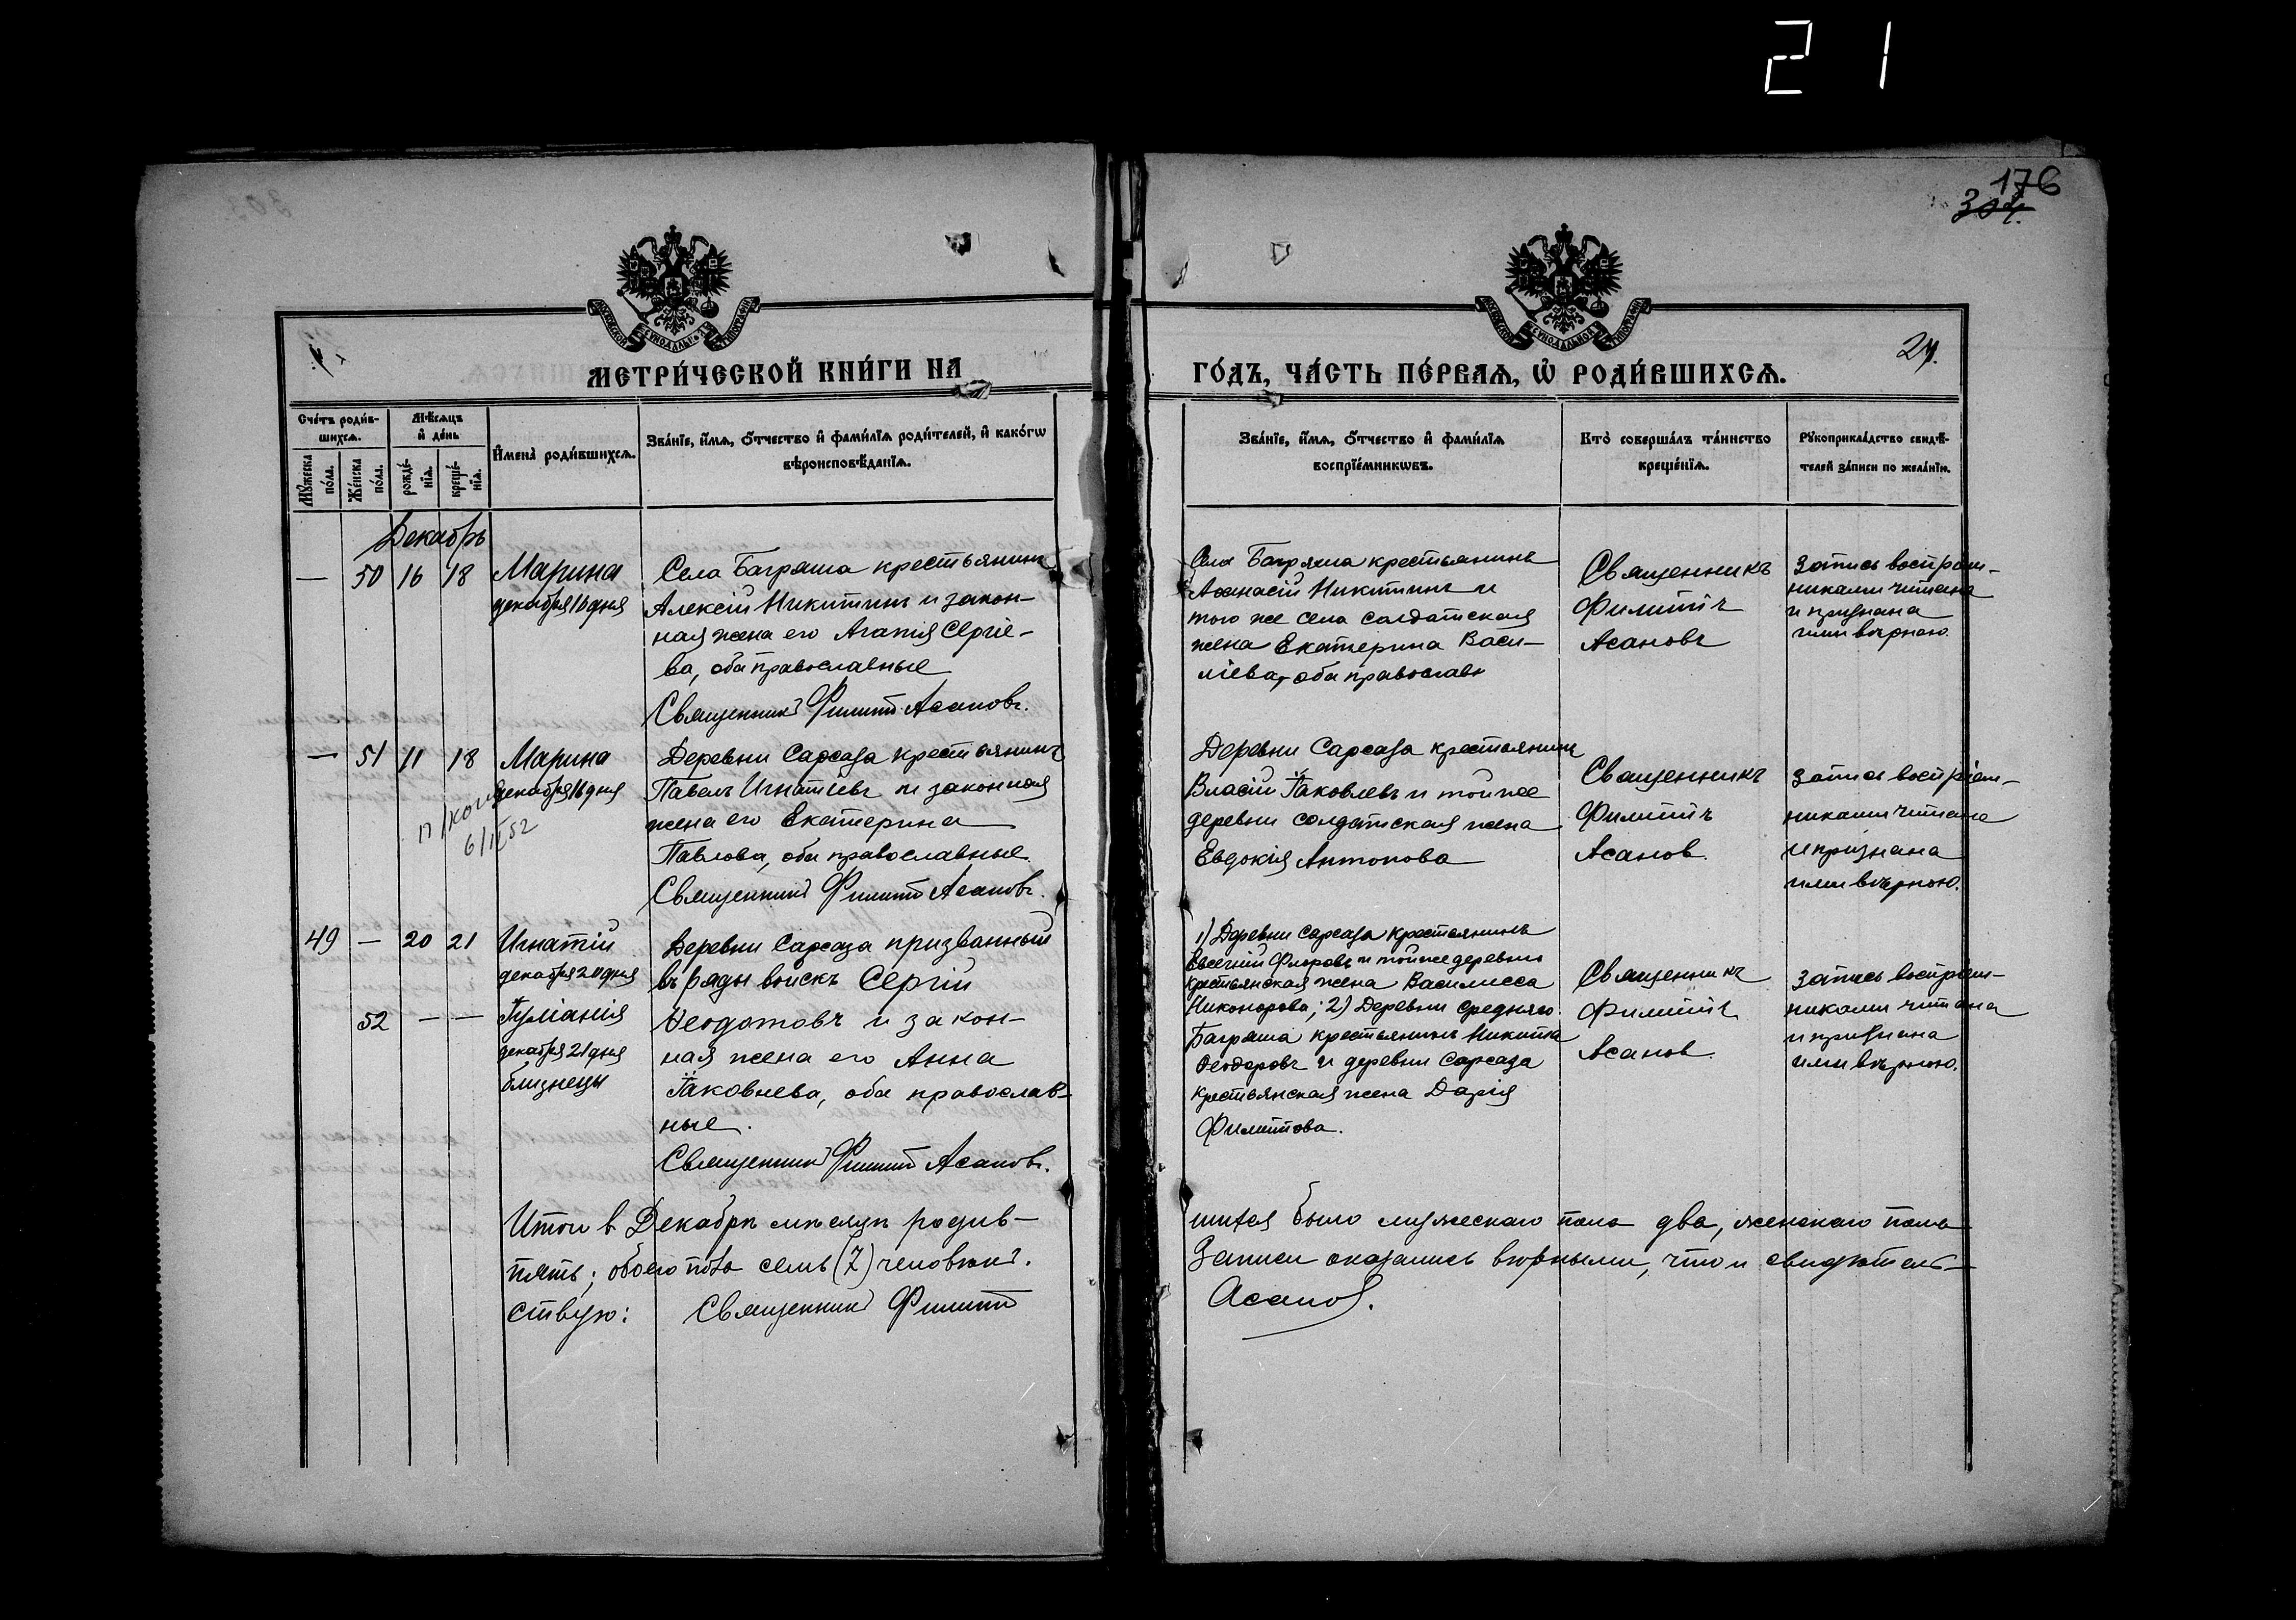 21
176
304.
МОСКОВСКОЙ СѴНОДАЛЬНОЙ ТИПОГРАФІИ
МОСКОВСКОЙ СѴНОДАЛЬНОЙ ТИПОГРАФІИ
24.
МЕТРИ́ЧЕСКОЙ КНИ́ГИ НА
ГО́ДЪ, ЧА́СТЬ ПЕ́РВАѦ, Ѡ РОДИ́ВШИХСѦ.
Сче́тъ роди́в-
шихсѧ.
Мѣ́сѧцъ
и де́нь
Му́жеска
по́ла.
Же́нска
по́ла.
рожде́-
нїѧ.
креще́-
нїѧ.
Имена̀ роди́вшихсѧ.
Зва́нїе, и́мѧ, о́тчество и фами́лїѧ роди́телей, и како́гѡ
вѣроисповѣ́данїѧ.
Зва́нїе, и́мѧ, о́тчество и фами́лїѧ
воспрїе́мникѡвъ.
Кто̀ соверша́лъ та́инство
креще́нїѧ.
Рукоприкла́дство свидѣ́-
телей за́писи по жела́нїю.
Декабрь
— 50 16 18 Марина
декабря 10 дня
Села Баграша крестьянинъ
Алексій Никитинъ и закон-
ная жена его Агапія Сергіе-
ва, оба православные
Священникъ Филиппъ Асановъ.
Села Баграша крестьянинъ
Аѳанасій Никитинъ и
того же села солдатская
жена Екатерина Васи-
ліева, оба православн
Священникъ
Филиппъ
Асановъ
Запись воспріем-
никами читана
и признана
ими вѣрною.
— 51 11 18 Марина
декабря 16 дня
п/коп
6/IX 52
Деревни Сарсаза крестьянинъ
Павелъ Игнатіевъ и законная
жена его Екатерина
Павлова, оба православные.
Священникъ Филиппъ Асановъ.
Деревни Сарсаза крестьянинъ
Власій Іаковлевъ и той же
деревни солдатская жена
Евдокія Антонова
Священникъ
Филиппъ
Асанов.
Запись воспріем-
никами читана
и признана
ими вѣрною.
49 — 20 21 Игнатій
декабря 20 дня
52 — — Іуліанія
декабря 21 дня
близнецы
Деревни Сарсаза призванный
въ ряды войскъ Сергій
Ѳеодотовъ и закон-
ная жена его Анна
Іаковлева, оба православ-
ные.
Священникъ Филиппъ Асановъ.
1) Деревни Сарсаза крестьянинъ
Евсегній Флоровъ и той же деревни
крестьянская жена Василисса
Никонорова; 2) Деревни Средняго
Баграша крестьянинъ Никита
Ѳеодоровъ и деревни Сарсаза
крестьянская жена Дарія
Филиппова.
Священникъ
Филиппъ
Асанов.
Запись воспріем-
никами читана
и признана
ими вѣрною.
Итого в Декабрѣ мѣсяцѣ родив-
шихся было мужескаго пола два, женскаго пола
пять; обоего пола семь (7) человѣкъ.
Записи оказались вѣрными, что и свидѣтель-
ствую: Священникъ Филиппъ
Асанов.